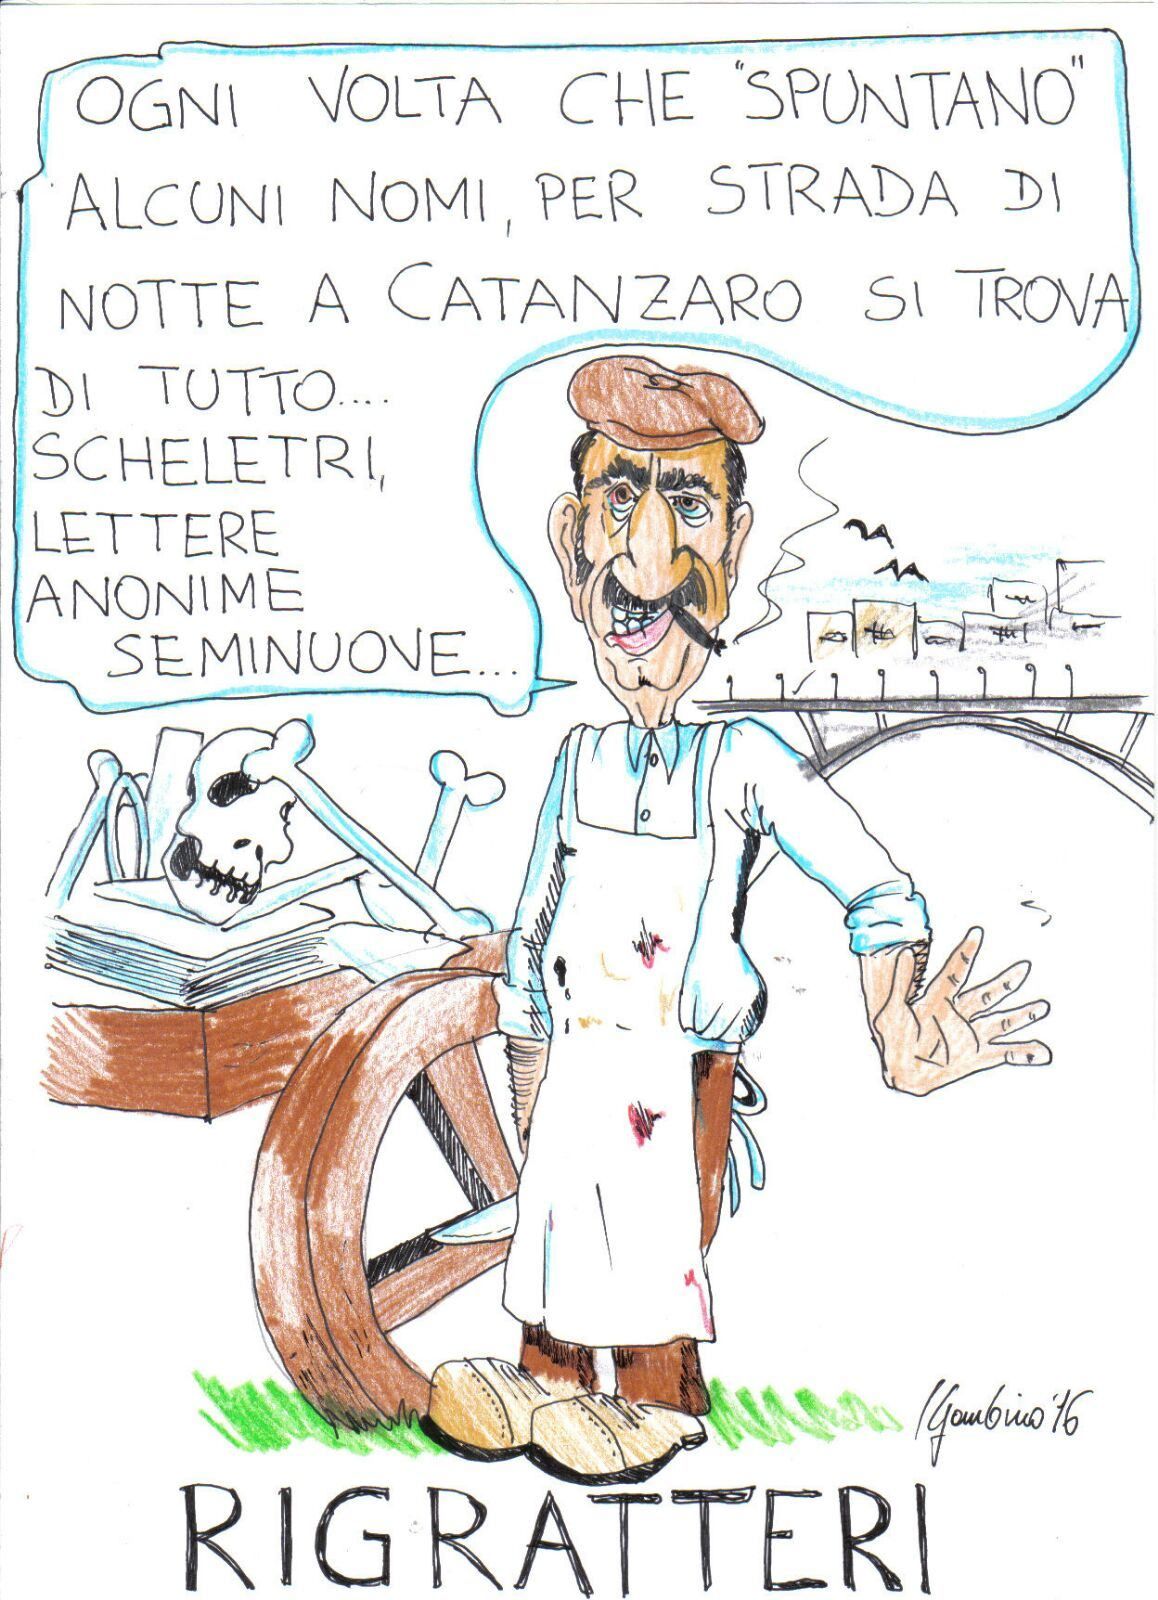 OGNI VOLTA CHE "SPUNTANO"
ALCUNI NOMI, PER STRADA DI
NOTTE A CATANZARO SI TROVA
DI TUTTO....
SCHELETRI,
LETTERE
ANONIME
SEMINUOVE...
Gambino '16
RIGRATTERI